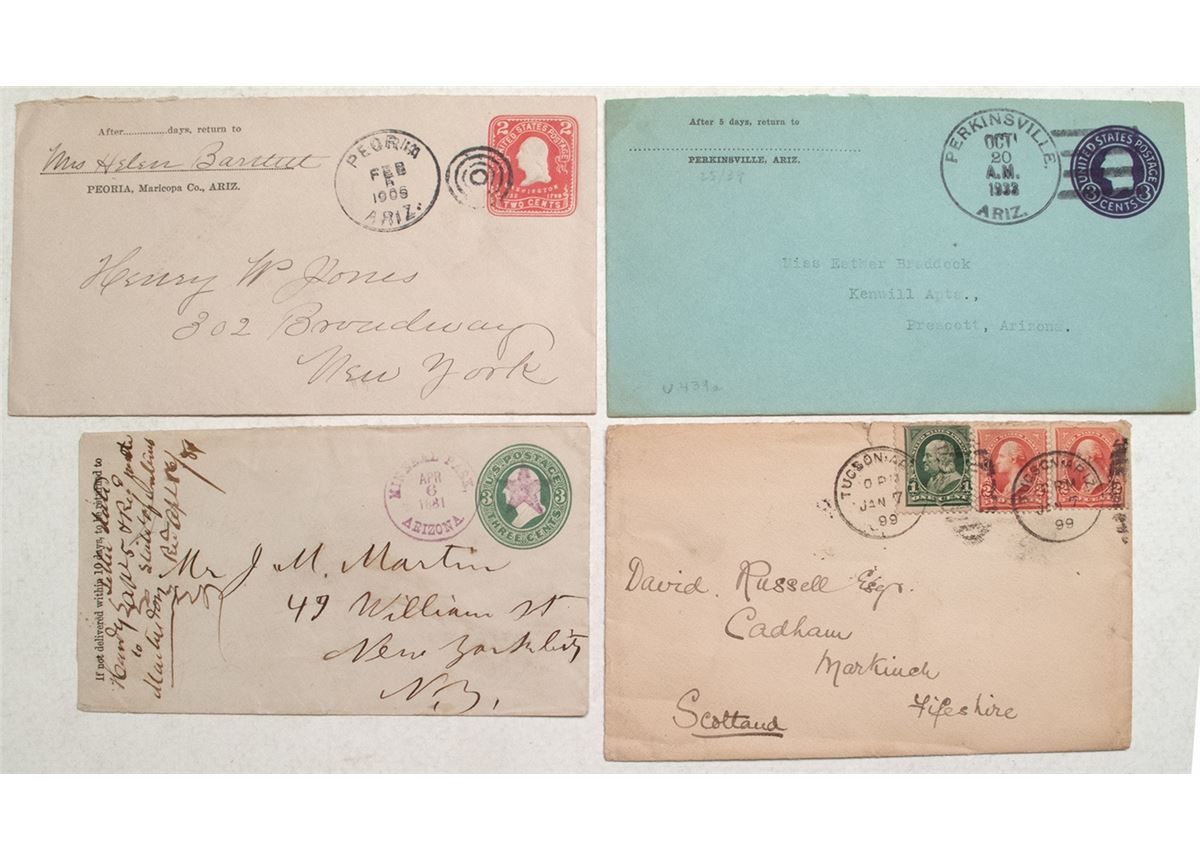 After...............days, return to
Mrs Helen Bartlett
PEORIA, Maricopa Co., ARIZ.
PEORIA
FEB
1909
ARIZ.
2 2
UNITED STATES POSTAGE
WASHINGTON
TWO CENTS
Henry W Jones
302 Broadway
New York
After 5 days, return to
PERKINSVILLE, ARIZ.
25/39
PERKINSVILLE,
OCT
20
A.M.
1933
ARIZ.
UNITED STATES POSTAGE
3 CENTS 3
Miss Esther Braddock
Kenwill Apts.,
Prescott, Arizona.
U439a
If not delivered within 10 days, to be returned to
MINERAL PARK,
APR
6
1881
ARIZONA
U.S. POSTAGE
3 3
THREE CENTS
Mr J. M. Martin
49 William St
New York City
N.Y.
TUCSON ARIZ
JAN 7
99
1 ONE CENT 1
TUCSON ARIZ
JAN 7
99
David Russell Esqr.
Cadham
Markinch
Fifeshire
Scotland